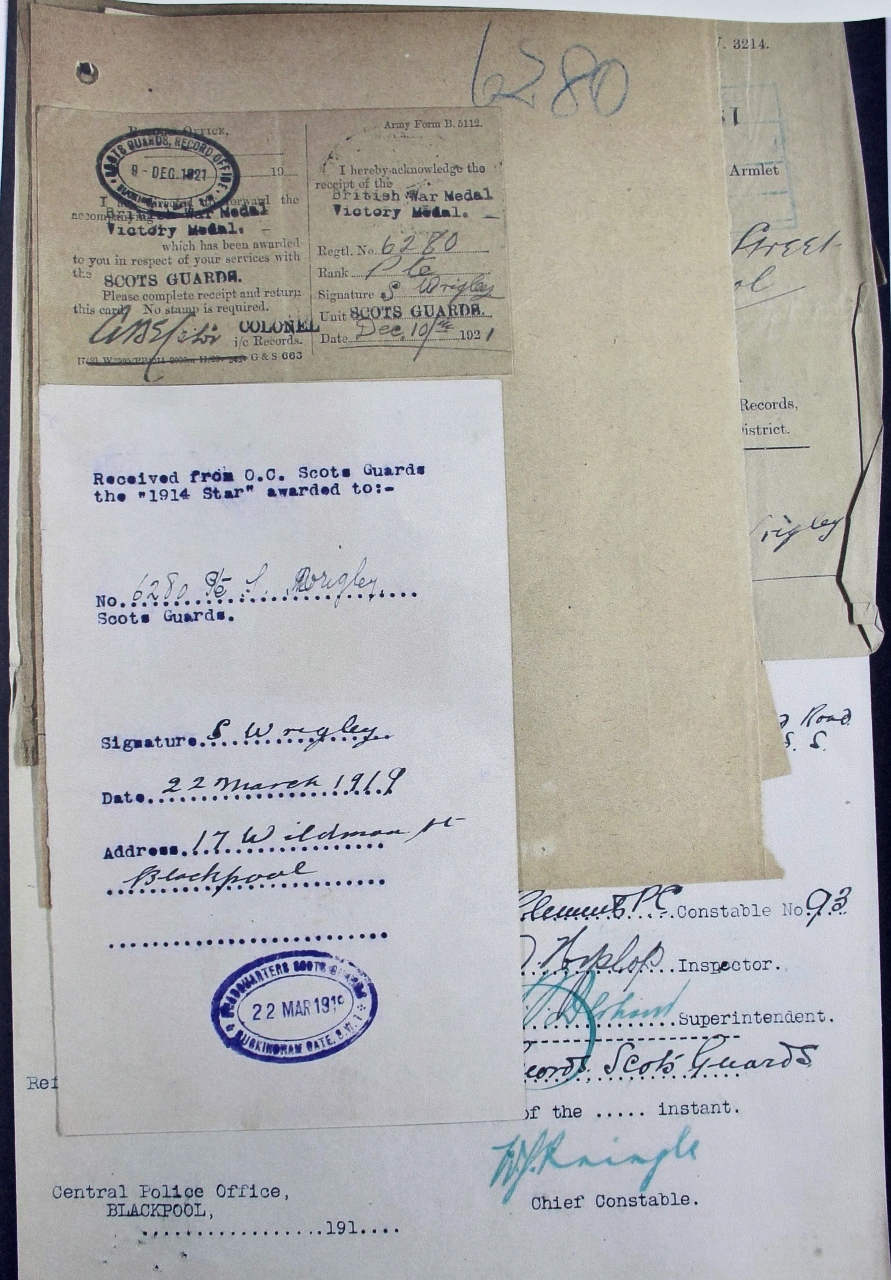 6280
. 3214.
Armlet
Street
Records,
istrict.
rigley
Road
S. S.
Office,
SCOTS GUARDS, RECORD OFFICE
9 - DEC. 1921
19
forward the
accompanying
British War Medal
Victory Medal.
which has been awarded
to you in respect of your services with
the SCOTS GUARDS.
Please complete receipt and return
this card. No stamp is required.
COLONEL
i/c Records.
G & S 663
Army Form B. 5112.
I hereby acknowledge the
receipt of the
British War Medal
Victory Medal.
Regtl. No. 6280
Rank Pte
Signature S Wrigley
Unit SCOTS GUARDS.
Date Dec. 10th 1921
Received from O.C. Scots Guards
the "1914 Star" awarded to:-
No. 6280 Pte S. Wrigley
Scots Guards.
Signature. S Wrigley
Date. 22 March 1919
Address. 17 Wildman St
Blackpool
HEADQUARTERS SCOTS GUARDS
22 MAR 1919
BUCKINGHAM GATE, S.W.1
P.C. Constable No. 93
Inspector.
Superintendent.
Scots Guards
of the ..... instant.
Chief Constable.
Ref
Central Police Office,
BLACKPOOL,
..................191....